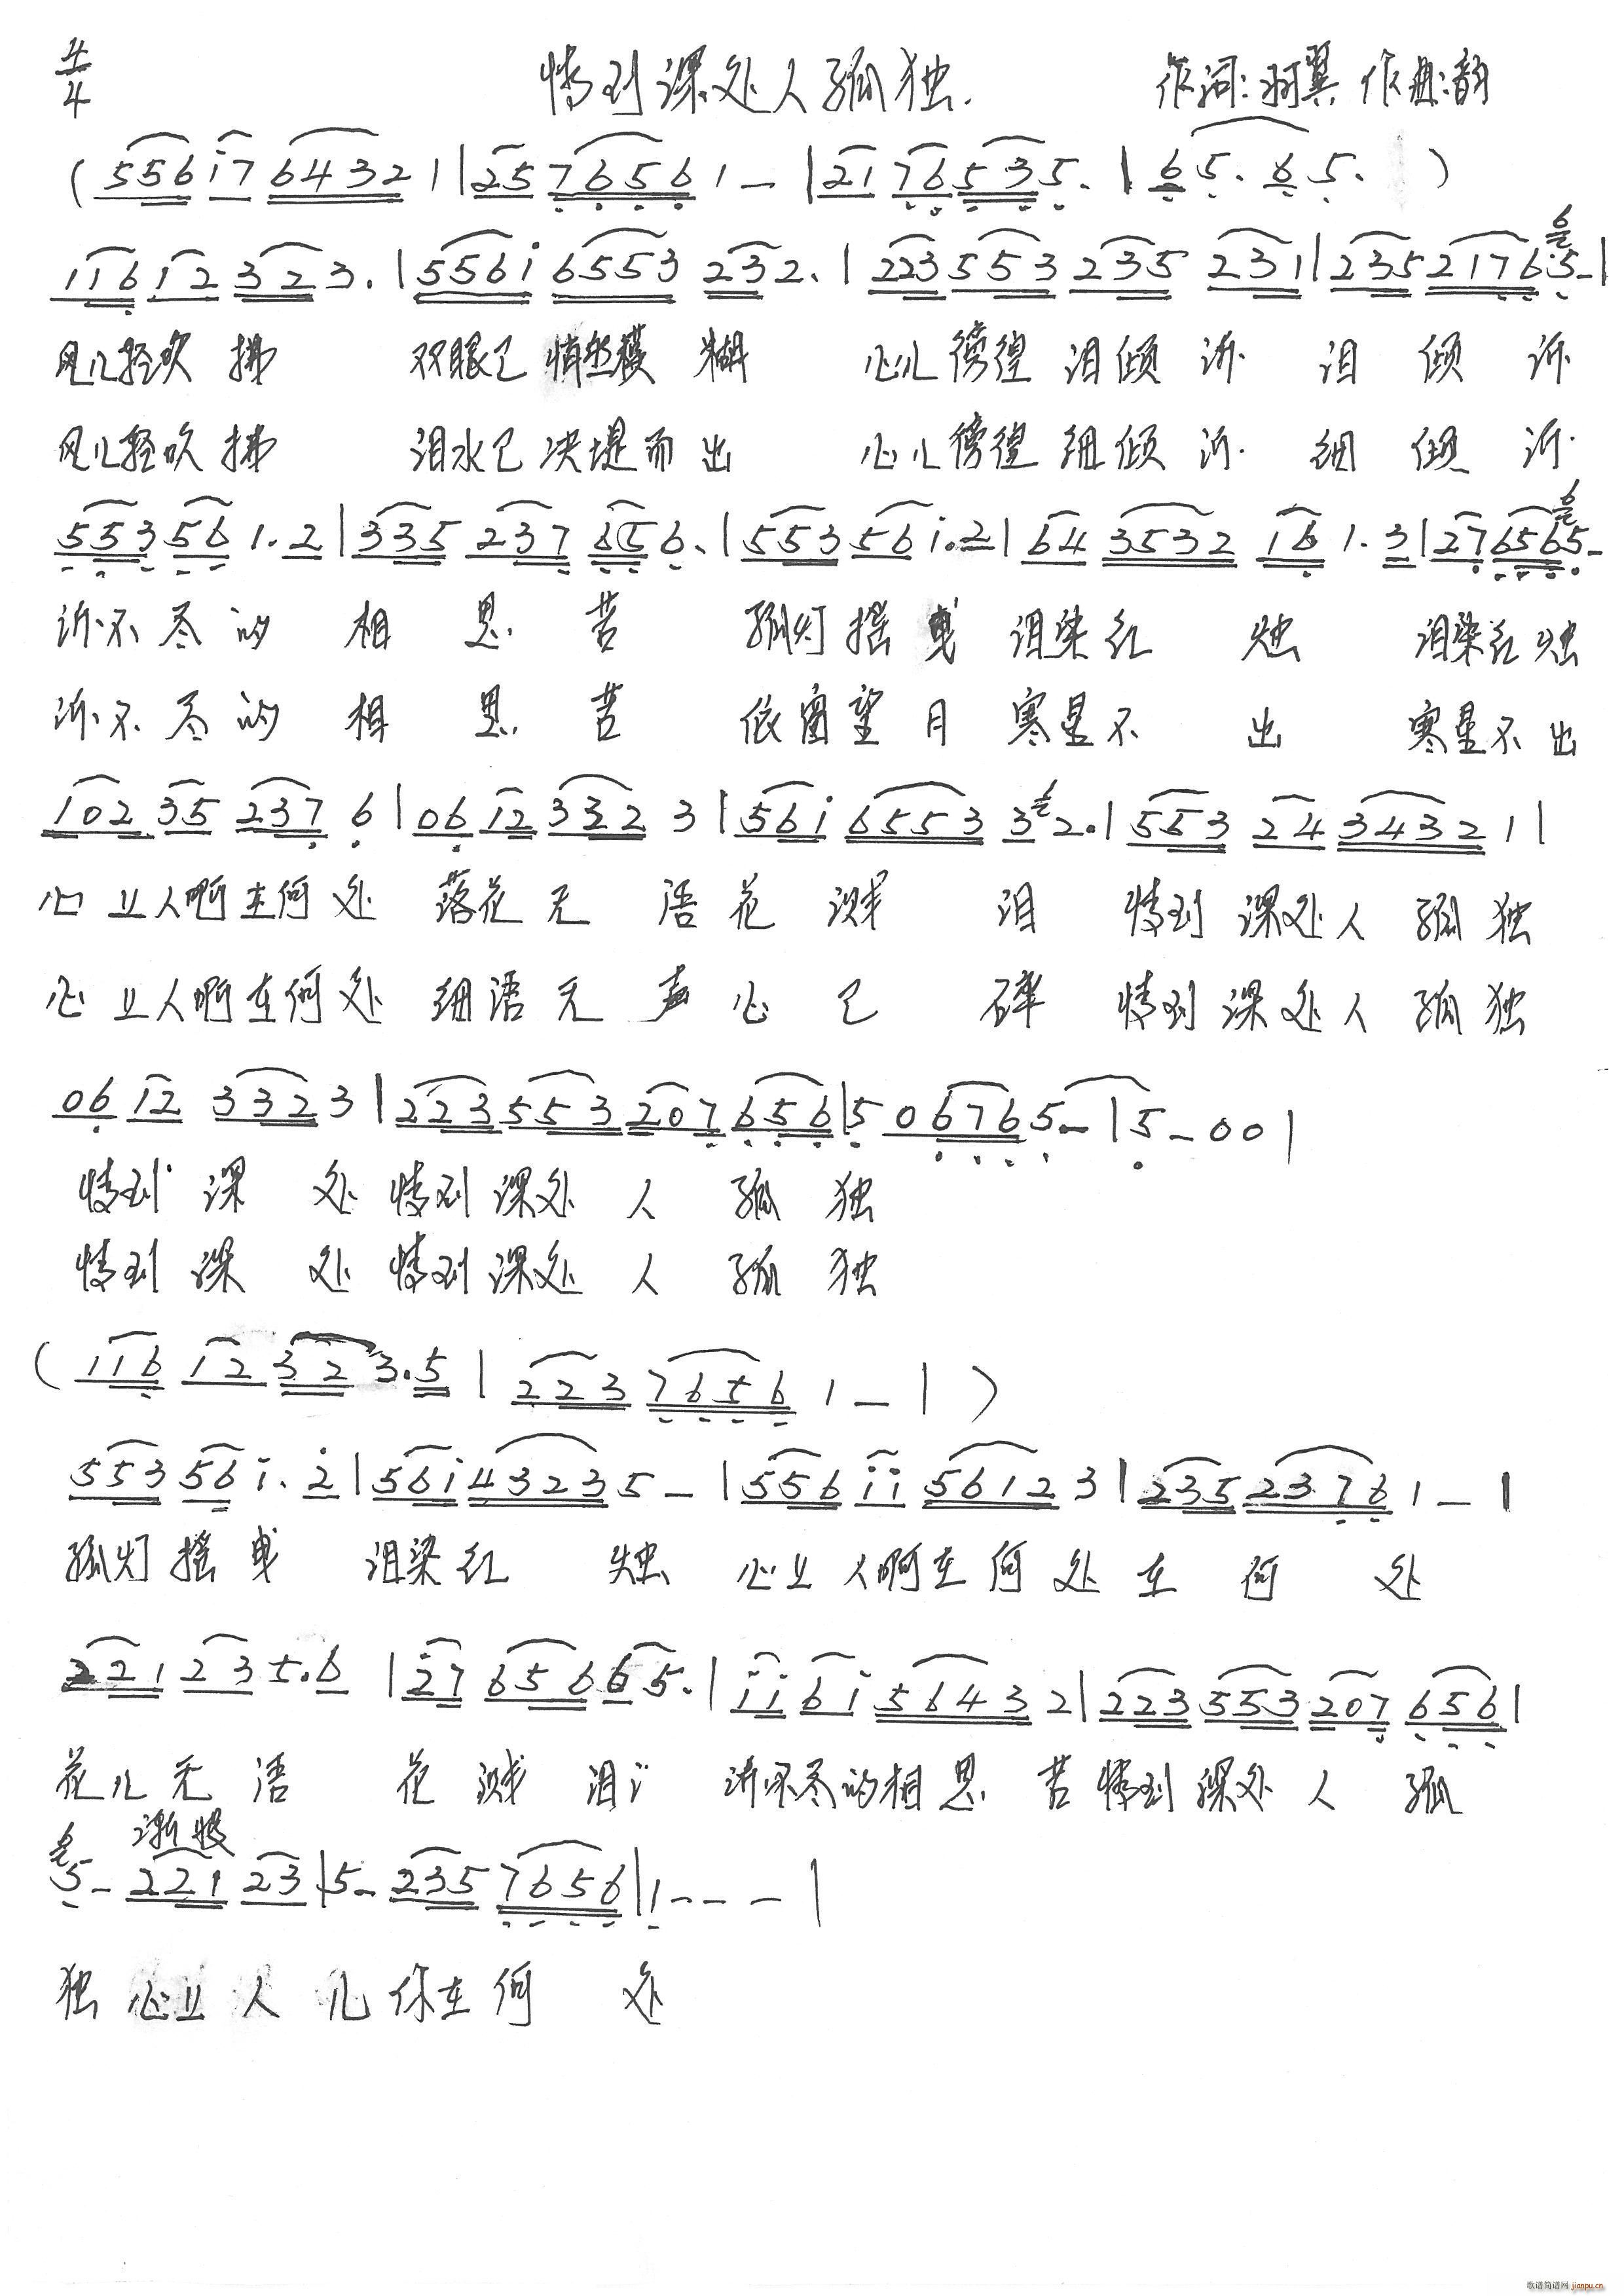 4/4 情到深处人孤独. 作词:羽翼 作曲:韵
( 556 i7 6432 1 | 25 7656 1 — | 21 76 535. | 65. 65. )
116 12 323. | 556i 6553 232. | 223 553 235 231 | 235 2176 5 - |
风儿轻吹 拂 双眼已悄然模糊 心儿徬徨泪倾诉 泪倾诉
风儿轻吹 拂 泪水已决堤而出 心儿徬徨细倾诉 细倾诉
553 56 1. 2 | 335 237 656. | 553 56 i. 2 | 64 3532 16 1. 3 | 27 6565 -
诉不尽的相思苦 孤灯摇曳泪染红烛 泪染红烛
诉不尽的相思苦 依窗望月寒星不出 寒星不出
102 35 237 6 | 06 12 3322 3 | 56i 6553 3 2. | 553 24 3432 1 |
心上人啊在何处 落花无语花溅泪 情到深处人孤独
心上人啊在何处 细语无声心已碎 情到深处人孤独
06 12 332 3 | 223 553 207 656 | 5 0676 5 - | 5 - 0 0 |
情到深处情到深处人孤独
情到深处情到深处人孤独
( 116 12 32 3. 5 | 223 7656 1 — | )
553 56 i. 2 | 56i 4323 5 - | 556 ii 5612 3 | 235 2376 1 — |
孤灯摇曳 泪染红烛 心上人啊在何处在何处
221 23 5. 6 | 27 656 65. | ii 6i 5643 2 | 223 553 207 656 |
花儿无语 花溅泪 诉不尽的相思苦情到深处人孤
渐慢
5 - 221 23 | 5 - 235 7656 | 1 - - - |
独心上人儿你在何处
歌谱简谱网 jianpu.cn